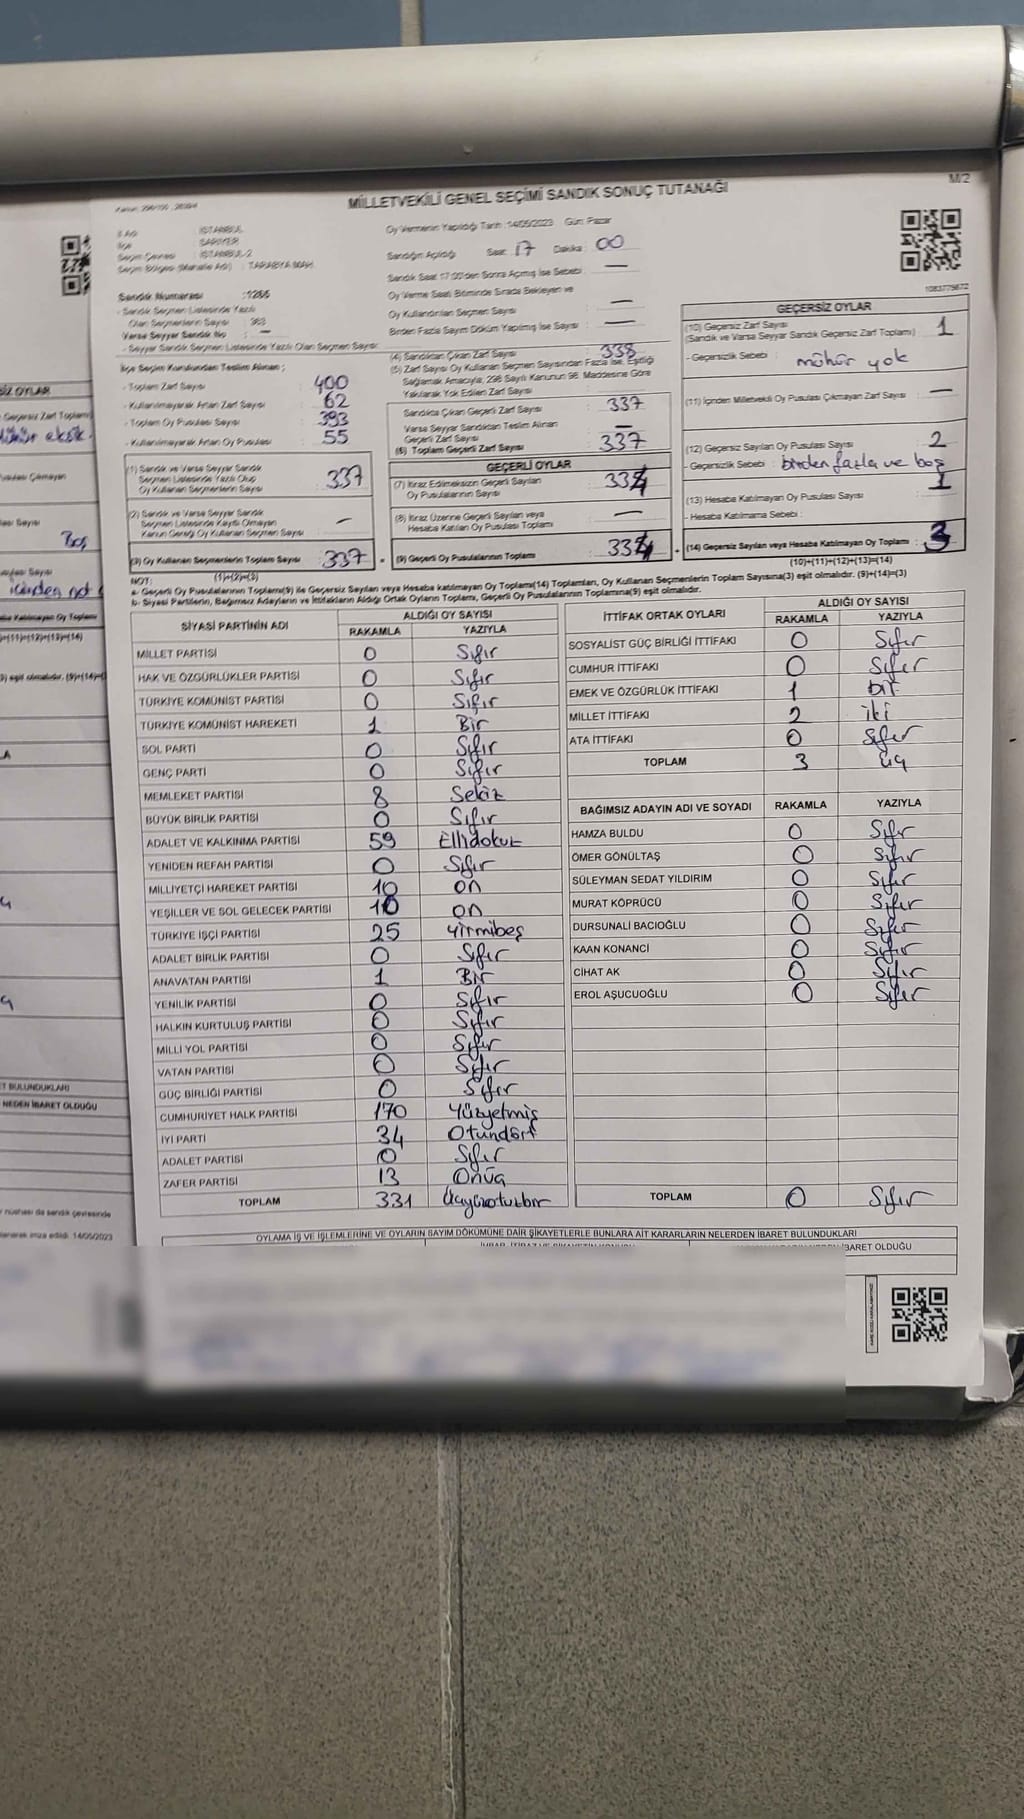 M/2
MİLLETVEKİLİ GENEL SEÇİMİ SANDIK SONUÇ TUTANAĞI
İl Adı : İSTANBUL
İlçe : SARIYER
Seçim Çevresi : İSTANBUL-2
Seçim Bölgesi (Mahalle Adı) : TARABYA MAH.
Sandık Numarası : 1286
- Sandık Seçmen Listesinde Yazılı
Olan Seçmenlerin Sayısı : 383
Varsa Seyyar Sandık No : —
- Seyyar Sandık Seçmen Listesinde Yazılı Olan Seçmen Sayısı:
İlçe Seçim Kurulundan Teslim Alınan ;
- Toplam Zarf Sayısı : 400
- Kullanılmayarak Artan Zarf Sayısı : 62
- Toplam Oy Pusulası : 393
- Kullanılmayarak Artan Oy Pusulası : 55
(1) Sandık ve Varsa Seyyar Sandık
Seçmen Listesinde Yazılı Olup
Oy Kullanan Seçmenlerin Sayısı : 337
(2) Sandık ve Varsa Seyyar Sandık
Seçmen Listesinde Kayıtlı Olmayan
Kanun Gereği Oy Kullanan Seçmen Sayısı : —
(3) Oy Kullanan Seçmenlerin Toplam Sayısı : 337
(1)+(2)=(3)
Oy Vermenin Yapıldığı Tarih : 14/05/2023 Gün: Pazar
Sandığın Açıldığı Saat: 17 Dakika : 00
Sandık Saat 17:00'den Sonra Açılmış İse Sebebi : —
Oy Verme Saati Bitiminde Sırada Bekleyen ve
Oy Kullandırılan Seçmen Sayısı : —
Birden Fazla Sayım Döküm Yapılmış İse Sayısı : —
(4) Sandıktan Çıkan Zarf Sayısı : 338
(5) Zarf Sayısı Oy Kullanan Seçmen Sayısından Fazla İse, Eşitliği
Sağlamak Amacıyla, 298 Sayılı Kanunun 98. Maddesine Göre
Yakılarak Yok Edilen Zarf Sayısı
Sandıkta Çıkan Geçerli Zarf Sayısı : 337
Varsa Seyyar Sandıktan Teslim Alınan
Geçerli Zarf Sayısı : —
(6) Toplam Geçerli Zarf Sayısı : 337
GEÇERLİ OYLAR
(7) İtiraz Edilmeksizin Geçerli Sayılan
Oy Pusulalarının Sayısı : 334
(8) İtiraz Üzerine Geçerli Sayılan veya
Hesaba Katılan Oy Pusulası Toplamı : —
(9) Geçerli Oy Pusulalarının Toplamı : 334
1083775672
GEÇERSİZ OYLAR
(10) Geçersiz Zarf Sayısı
(Sandık ve Varsa Seyyar Sandık Geçersiz Zarf Toplamı) : 1
- Geçersizlik Sebebi : mühür yok
(11) İçinden Milletvekili Oy Pusulası Çıkmayan Zarf Sayısı : —
(12) Geçersiz Sayılan Oy Pusulası Sayısı : 2
- Geçersizlik Sebebi : birden fazla ve boş
(13) Hesaba Katılmayan Oy Pusulası Sayısı : 1
- Hesaba Katılmama Sebebi :
(14) Geçersiz Sayılan veya Hesaba Katılmayan Oy Toplamı : 3
(10)+(11)+(12)+(13)=(14)
NOT:
a- Geçerli Oy Pusulalarının Toplamı(9) ile Geçersiz Sayılan veya Hesaba katılmayan Oy Toplamı(14) Toplamları, Oy Kullanan Seçmenlerin Toplam Sayısına(3) eşit olmalıdır. (9)+(14)=(3)
b- Siyasi Partilerin, Bağımsız Adayların ve İttifakların Aldığı Ortak Oyların Toplamı, Geçerli Oy Pusulalarının Toplamına(9) eşit olmalıdır.
SİYASİ PARTİNİN ADI ALDIĞI OY SAYISI
RAKAMLA YAZIYLA
MİLLET PARTİSİ 0 Sıfır
HAK VE ÖZGÜRLÜKLER PARTİSİ 0 Sıfır
TÜRKİYE KOMÜNİST PARTİSİ 0 Sıfır
TÜRKİYE KOMÜNİST HAREKETİ 1 Bir
SOL PARTİ 0 Sıfır
GENÇ PARTİ 0 Sıfır
MEMLEKET PARTİSİ 8 Sekiz
BÜYÜK BİRLİK PARTİSİ 0 Sıfır
ADALET VE KALKINMA PARTİSİ 59 Ellidokuz
YENİDEN REFAH PARTİSİ 0 Sıfır
MİLLİYETÇİ HAREKET PARTİSİ 10 on
YEŞİLLER VE SOL GELECEK PARTİSİ 10 on
TÜRKİYE İŞÇİ PARTİSİ 25 yirmibeş
ADALET BİRLİK PARTİSİ 0 Sıfır
ANAVATAN PARTİSİ 1 Bir
YENİLİK PARTİSİ 0 Sıfır
HALKIN KURTULUŞ PARTİSİ 0 Sıfır
MİLLİ YOL PARTİSİ 0 Sıfır
VATAN PARTİSİ 0 Sıfır
GÜÇ BİRLİĞİ PARTİSİ 0 Sıfır
CUMHURİYET HALK PARTİSİ 170 Yüzyetmiş
İYİ PARTİ 34 Otuzdört
ADALET PARTİSİ 0 Sıfır
ZAFER PARTİSİ 13 Onüç
TOPLAM 331 Üçyüzotuzbir
İTTİFAK ORTAK OYLARI ALDIĞI OY SAYISI
RAKAMLA YAZIYLA
SOSYALİST GÜÇ BİRLİĞİ İTTİFAKI 0 Sıfır
CUMHUR İTTİFAKI 0 Sıfır
EMEK VE ÖZGÜRLÜK İTTİFAKI 1 bir
MİLLET İTTİFAKI 2 iki
ATA İTTİFAKI 0 Sıfır
TOPLAM 3 üç
BAĞIMSIZ ADAYIN ADI VE SOYADI RAKAMLA YAZIYLA
HAMZA BULDU 0 Sıfır
ÖMER GÖNÜLTAŞ 0 Sıfır
SÜLEYMAN SEDAT YILDIRIM 0 Sıfır
MURAT KÖPRÜCÜ 0 Sıfır
DURSUNALİ BACIOĞLU 0 Sıfır
KAAN KONANCI 0 Sıfır
CİHAT AK 0 Sıfır
EROL AŞUCUOĞLU 0 Sıfır
TOPLAM 0 Sıfır
OYLAMA İŞ VE İŞLEMLERİNE VE OYLARIN SAYIM DÖKÜMÜNE DAİR ŞİKAYETLERLE BUNLARA AİT KARARLARIN NELERDEN İBARET BULUNDUKLARI
İBARET OLDUĞU